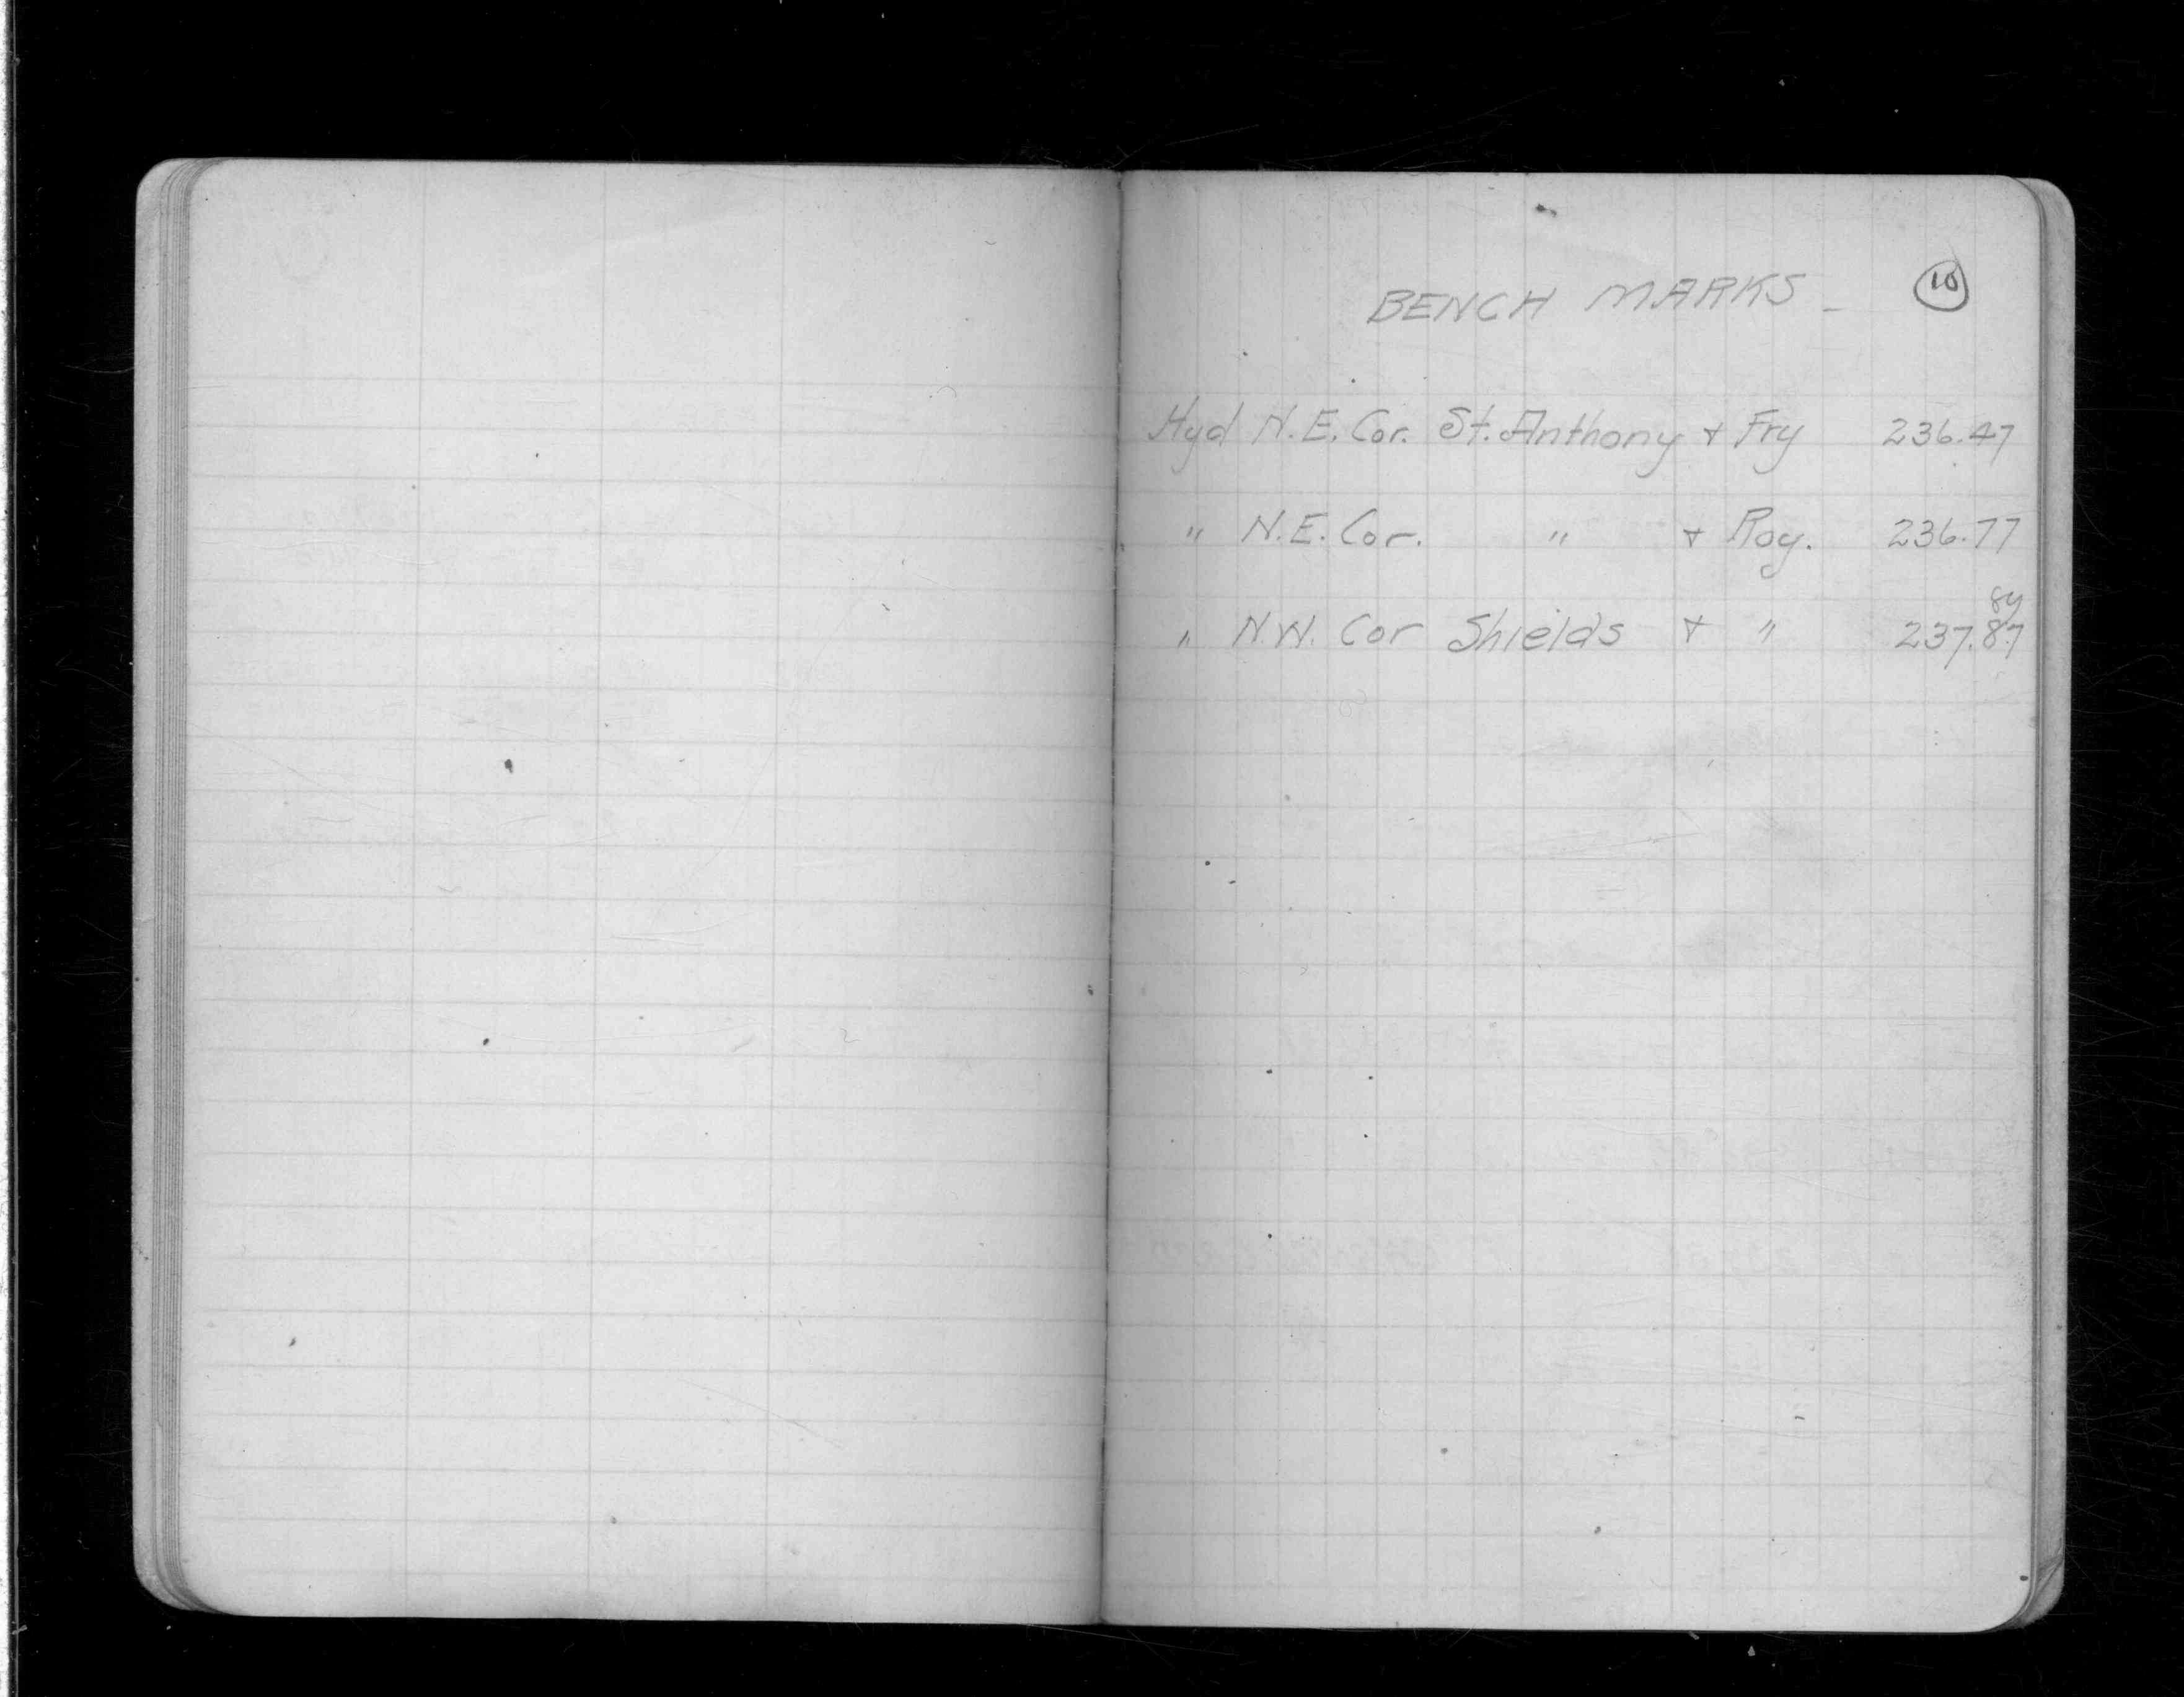 BENCH MARKS - 10
Hyd N.E. Cor. St. Anthony & Fry 236.47
" N.E. Cor. " & Roy. 236.77
84
" N.W. Cor Shields & " 237.87